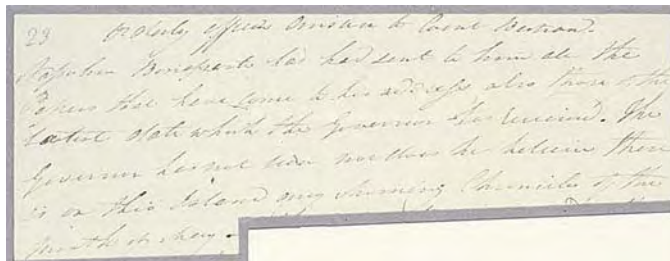 23 Orderly officer's answer to Count Bertrand.
Napoleon Bonaparte has had sent to him all the
Papers that have come to his address also those of the
latest date which the Governor has received. The
Governor has not seen nor does he believe there
is on this Island any Morning Chronicles of the
month of May